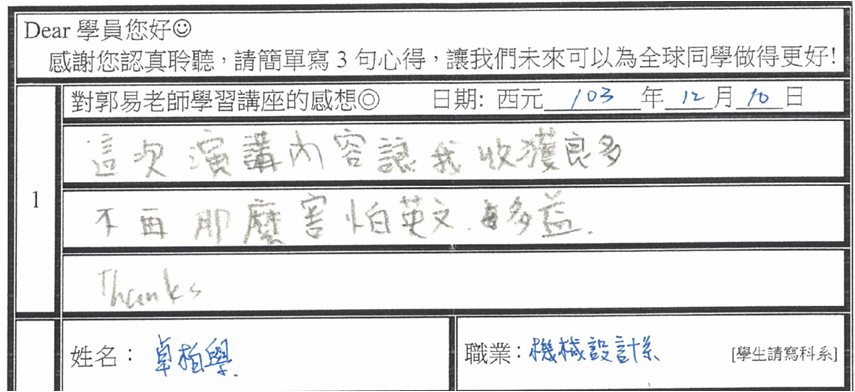 Dear 學員您好☺
感謝您認真聆聽，請簡單寫 3 句心得，讓我們未來可以為全球同學做得更好!
對郭易老師學習講座的感想◎ 日期: 西元 103 年 12 月 10 日
1
這次演講內容讓我收獲良多
不再那麼害怕英文 多益.
Thanks
姓名： 卓柏學
職業： 機械設計系 [學生請寫科系]